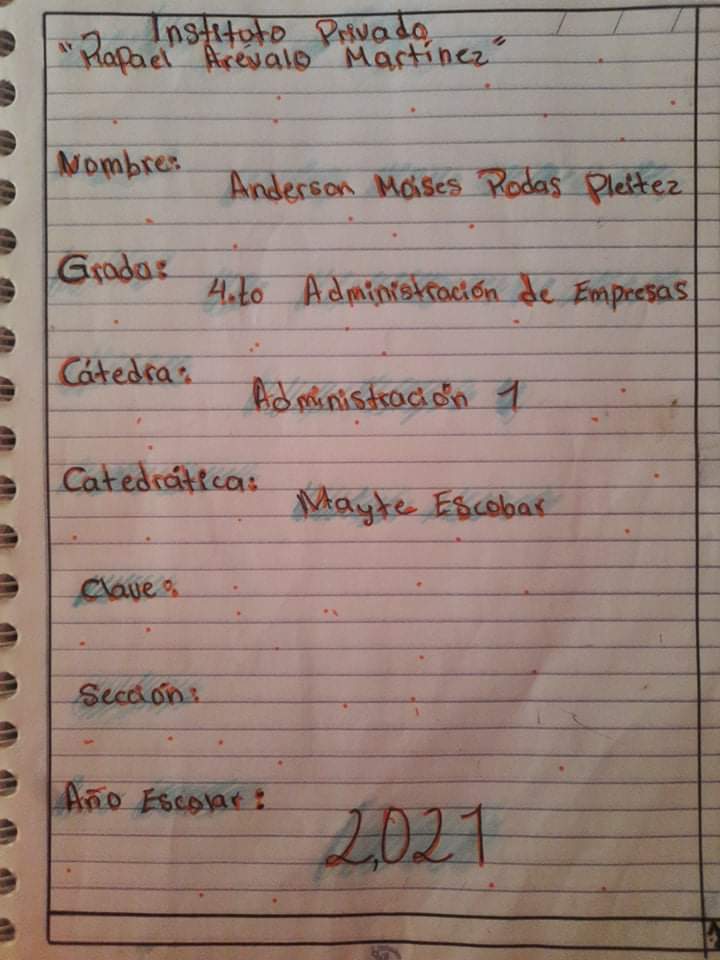 Instituto Privado
"Rafael Arévalo Martínez"
Nombre:
Anderson Moises Rodas Pleitez
Grado:
4.to Administración de Empresas
Cátedra:
Administración 1
Catedrática:
Mayte Escobar
Clave:
Sección:
Año Escolar:
2,021